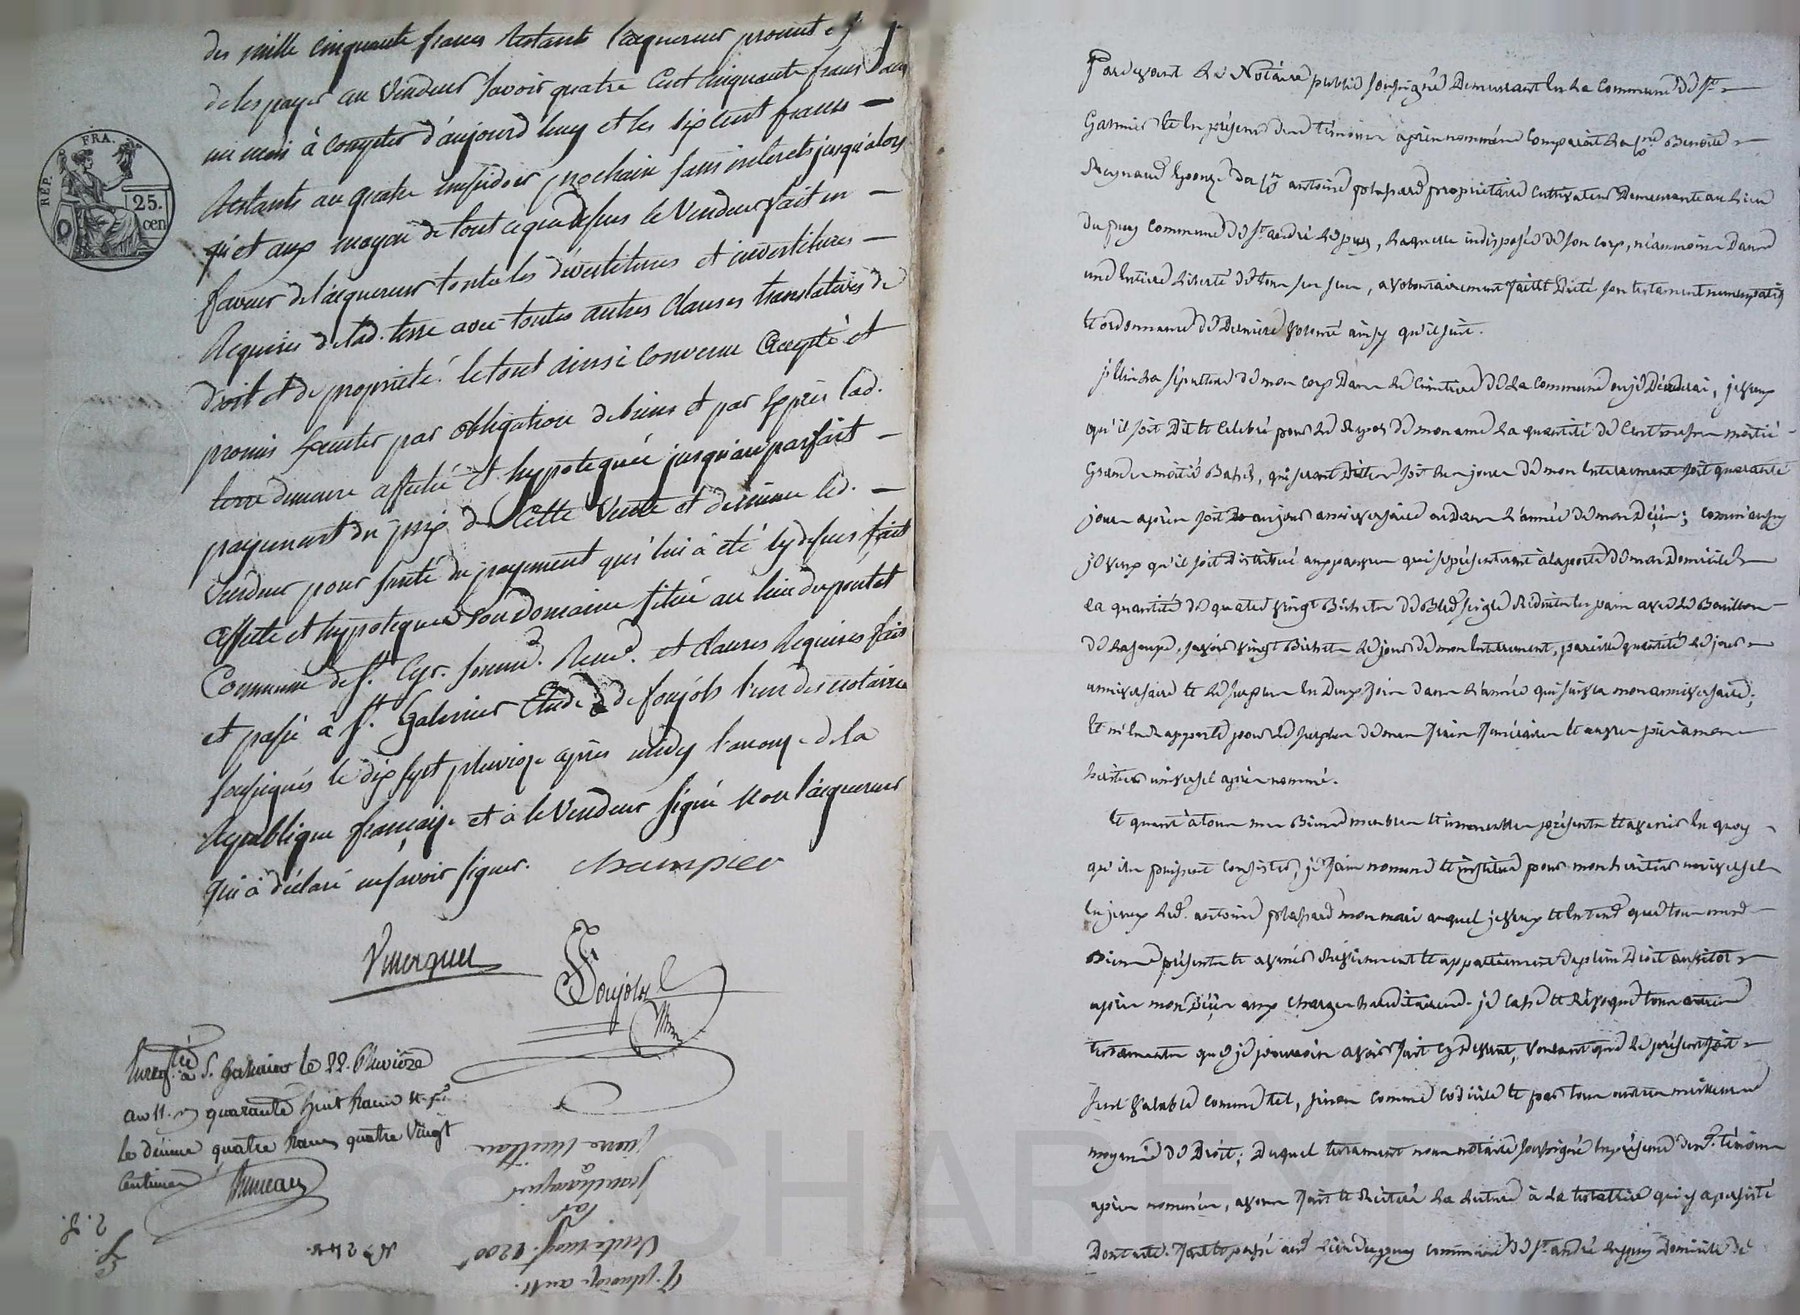 des mille cinquante francs restants l'acquereur promet et
de les payer au Vendeur savoir quatre Cent cinquante francs dans
un mois à compter d'aujourd'huy et les six cent francs —
restants au quatre messidor prochain sans interets jusqu'alors
qui et aux moyens de tout ce que dessus le Vendeur fait en —
faveur de l'acquereur toutes les devestitures et investitures —
Requises de lad. terre avec toutes autres clauses translatives de
droit et de propriété. le tout ainsi convenu Accepté et
promis executer par obligation de biens et par exprès lad.
terre demeure affectée et hypotequée jusqu'au parfait —
payement du prix de Cette Vente et de même led. —
Vendeur pour sureté du payement qui lui à été cy dessus fait
affecte et hypoteque son domaine situé au lieu du pont et
Commune de St. Cyr. Soumd. Rend. et clauses Requises fait
et passé à St. Galmier Etude de Soujols l'un des notaires
soussignés le dix sept pluviose après midy l'an onze de la
République française et à le Vendeur signé non l'acquereur
qui à déclaré ne savoir signer. Champier
Vmerquel
Soujols
Enregtré à S. Galmier le 22. Pluviose
an 11. quarante huit francs
Le décime quatre francs quatre Vingt
Centimes
REP. FRA.
25. cen
Pardevant le Notaire public soussigné Demeurant en la Commune de St.
Galmier et en présence des témoins après nommés comparoit la Benoite
Reynaud épouze du Antoine propriétaire cultivateur Demeurante au lieu
du puy Commune de St. andré le puy, laquelle indisposée de son corp, néammoins Dans
une entiere liberté de tous ses sens, a volontairement fait et Dicté son testament nuncupatif
et ordonnance de Derniere volonté ainsy qu'il suit.
j'élis la sépulture de mon corp Dans le cimetiere de la commune ou je Décéderai, je veux
qu'il soit Dit et Célébré pour le Repos de mon ame la quantité de Cent messes moitié
Grandes moitié Basses, qui seront Dittes soit les jours de mon Enterrement soit quarante
jours après soit au jour anniversaire ou Dans l'année de mon Décès; comm'aussy
je veux qu'il soit Distribué aux pauvres qui se présenteront à la porte de mon Domicile
la quantité de quatre vingt Bichets de Bled seigle Réduite en pain avec le Bouillon
de la soupe, savoir vingt Bichets le jour de mon Enterrement, pareille quantité le jour
anniversaire et le surplus en Deux fois dans l'année qui suivra mon anniversaire;
et m'en Rapporte pour le surplus de mes frais funéraires et œuvres pies à mon
heritier universel après nommé.
Et quant à tous mes Biens meubles et immeubles présents et avenir en quoy
qu'ils puissent consister, je fais nomme et institue pour mon heritier universel
led. antoine mon mari auquel je veux et entend que tous mes
Biens présents et avenir Reviennent et appartiennent de plein Droit aussitot
après mon Décès aux charges héréditaires. je casse et Révoque tous autres
testaments que je pourrois avoir fait cy devant, voulant que le présent soit
seul valable comme tel, sinon comme codicile et par tous autres meilleurs
moyens de Droit; Duquel testament nous notaire soussigné en présence des témoins
après nommés, avons fait et Réitéré la lecture à la testatrice qui y a persisté
Dont acte. fait et passé aud. lieu du puy commune de St. andré le puy Domicile de